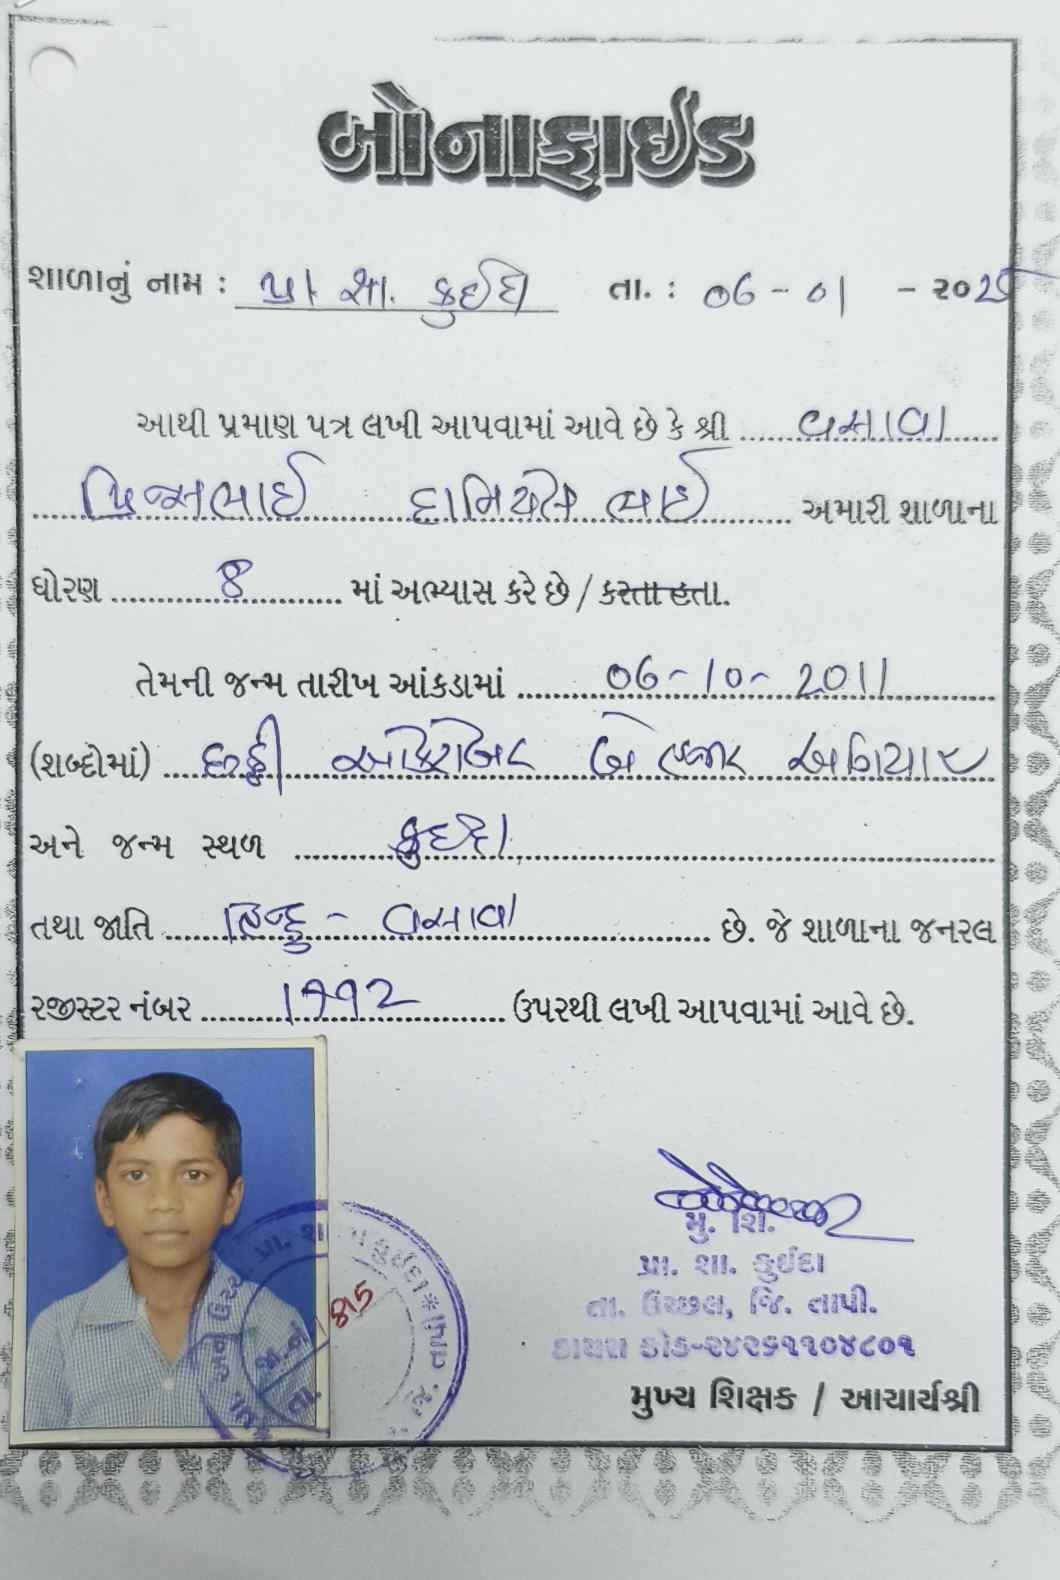 બોનાફાઈડ
શાળાનું નામ : પ્રા શા. કુઈદા તા. : ૦6 - ૦1 - ૨૦25
આથી પ્રમાણ પત્ર લખી આપવામાં આવે છે કે શ્રી વસાવા
પ્રિન્સભાઈ દાનિયેલભાઈ અમારી શાળાના
ધોરણ 8 માં અભ્યાસ કરે છે / કરતા હતા.
તેમની જન્મ તારીખ આંકડામાં 06-10-2011
(શબ્દોમાં) છઠ્ઠી ઓક્ટોબર બે હજાર અગિયાર
અને જન્મ સ્થળ કુઈદા
તથા જાતિ હિન્દુ - વસાવા છે. જે શાળાના જનરલ
રજીસ્ટર નંબર ઉપરથી લખી આપવામાં આવે છે.
મુ. શિ.
પ્રા. શા. કુઈદા
તા. ઉચ્છલ, જિ. તાપી.
ડાયસ કોડ-૨૪૨૬૧૧૦૪૮૦૧
મુખ્ય શિક્ષક / આચાર્યશ્રી
815